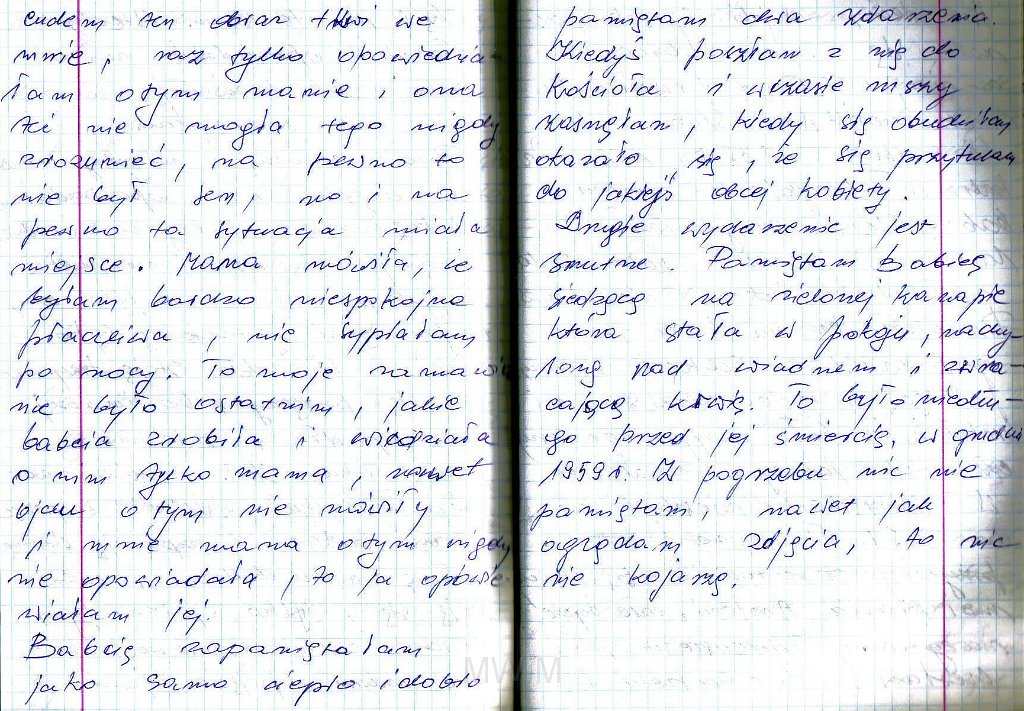 cudem ten obraz tkwi we
mnie, raz tylko opowiedzia-
łam o tym mamie i ona
też nie mogła tego nigdy
zrozumieć, na pewno to
nie był sen, no i na
pewno ta sytuacja miała
miejsce. Mama mówiła, że
byłam bardzo niespokojna
płaczliwa, nie sypiałam
po nocy. To moje zamawia
nie było ostatnim, jakie
babcia zrobiła i wiedziała
o nim tylko mama, nawet
ojcu o tym nie mówiły
i mnie mama o tym nigdy
nie opowiadała, to ja opowie
działam jej.
Babcię zapamiętałam
jako samo ciepło i dobro
pamiętam dwa zdarzenia.
Kiedyś poszłam z nią do
Kościoła i wczasie mszy
zasnęłam, kiedy się obudziłam
okazało się, że się przytulam
do jakiejś obcej kobiety.
Drugie wydarzenie jest
smutne. Pamiętam Babcię
siedzącą na zielonej kanapie
która stała w pokoju, nachy-
loną nad wiadrem i zwra-
cającą krwią. To było niedłu-
go przed jej śmiercią, w grudniu
1959 r. Z pogrzebu nic nie
pamiętam, nawet jak
oglądam zdjęcia, to nic
nie kojarzę.
MWM